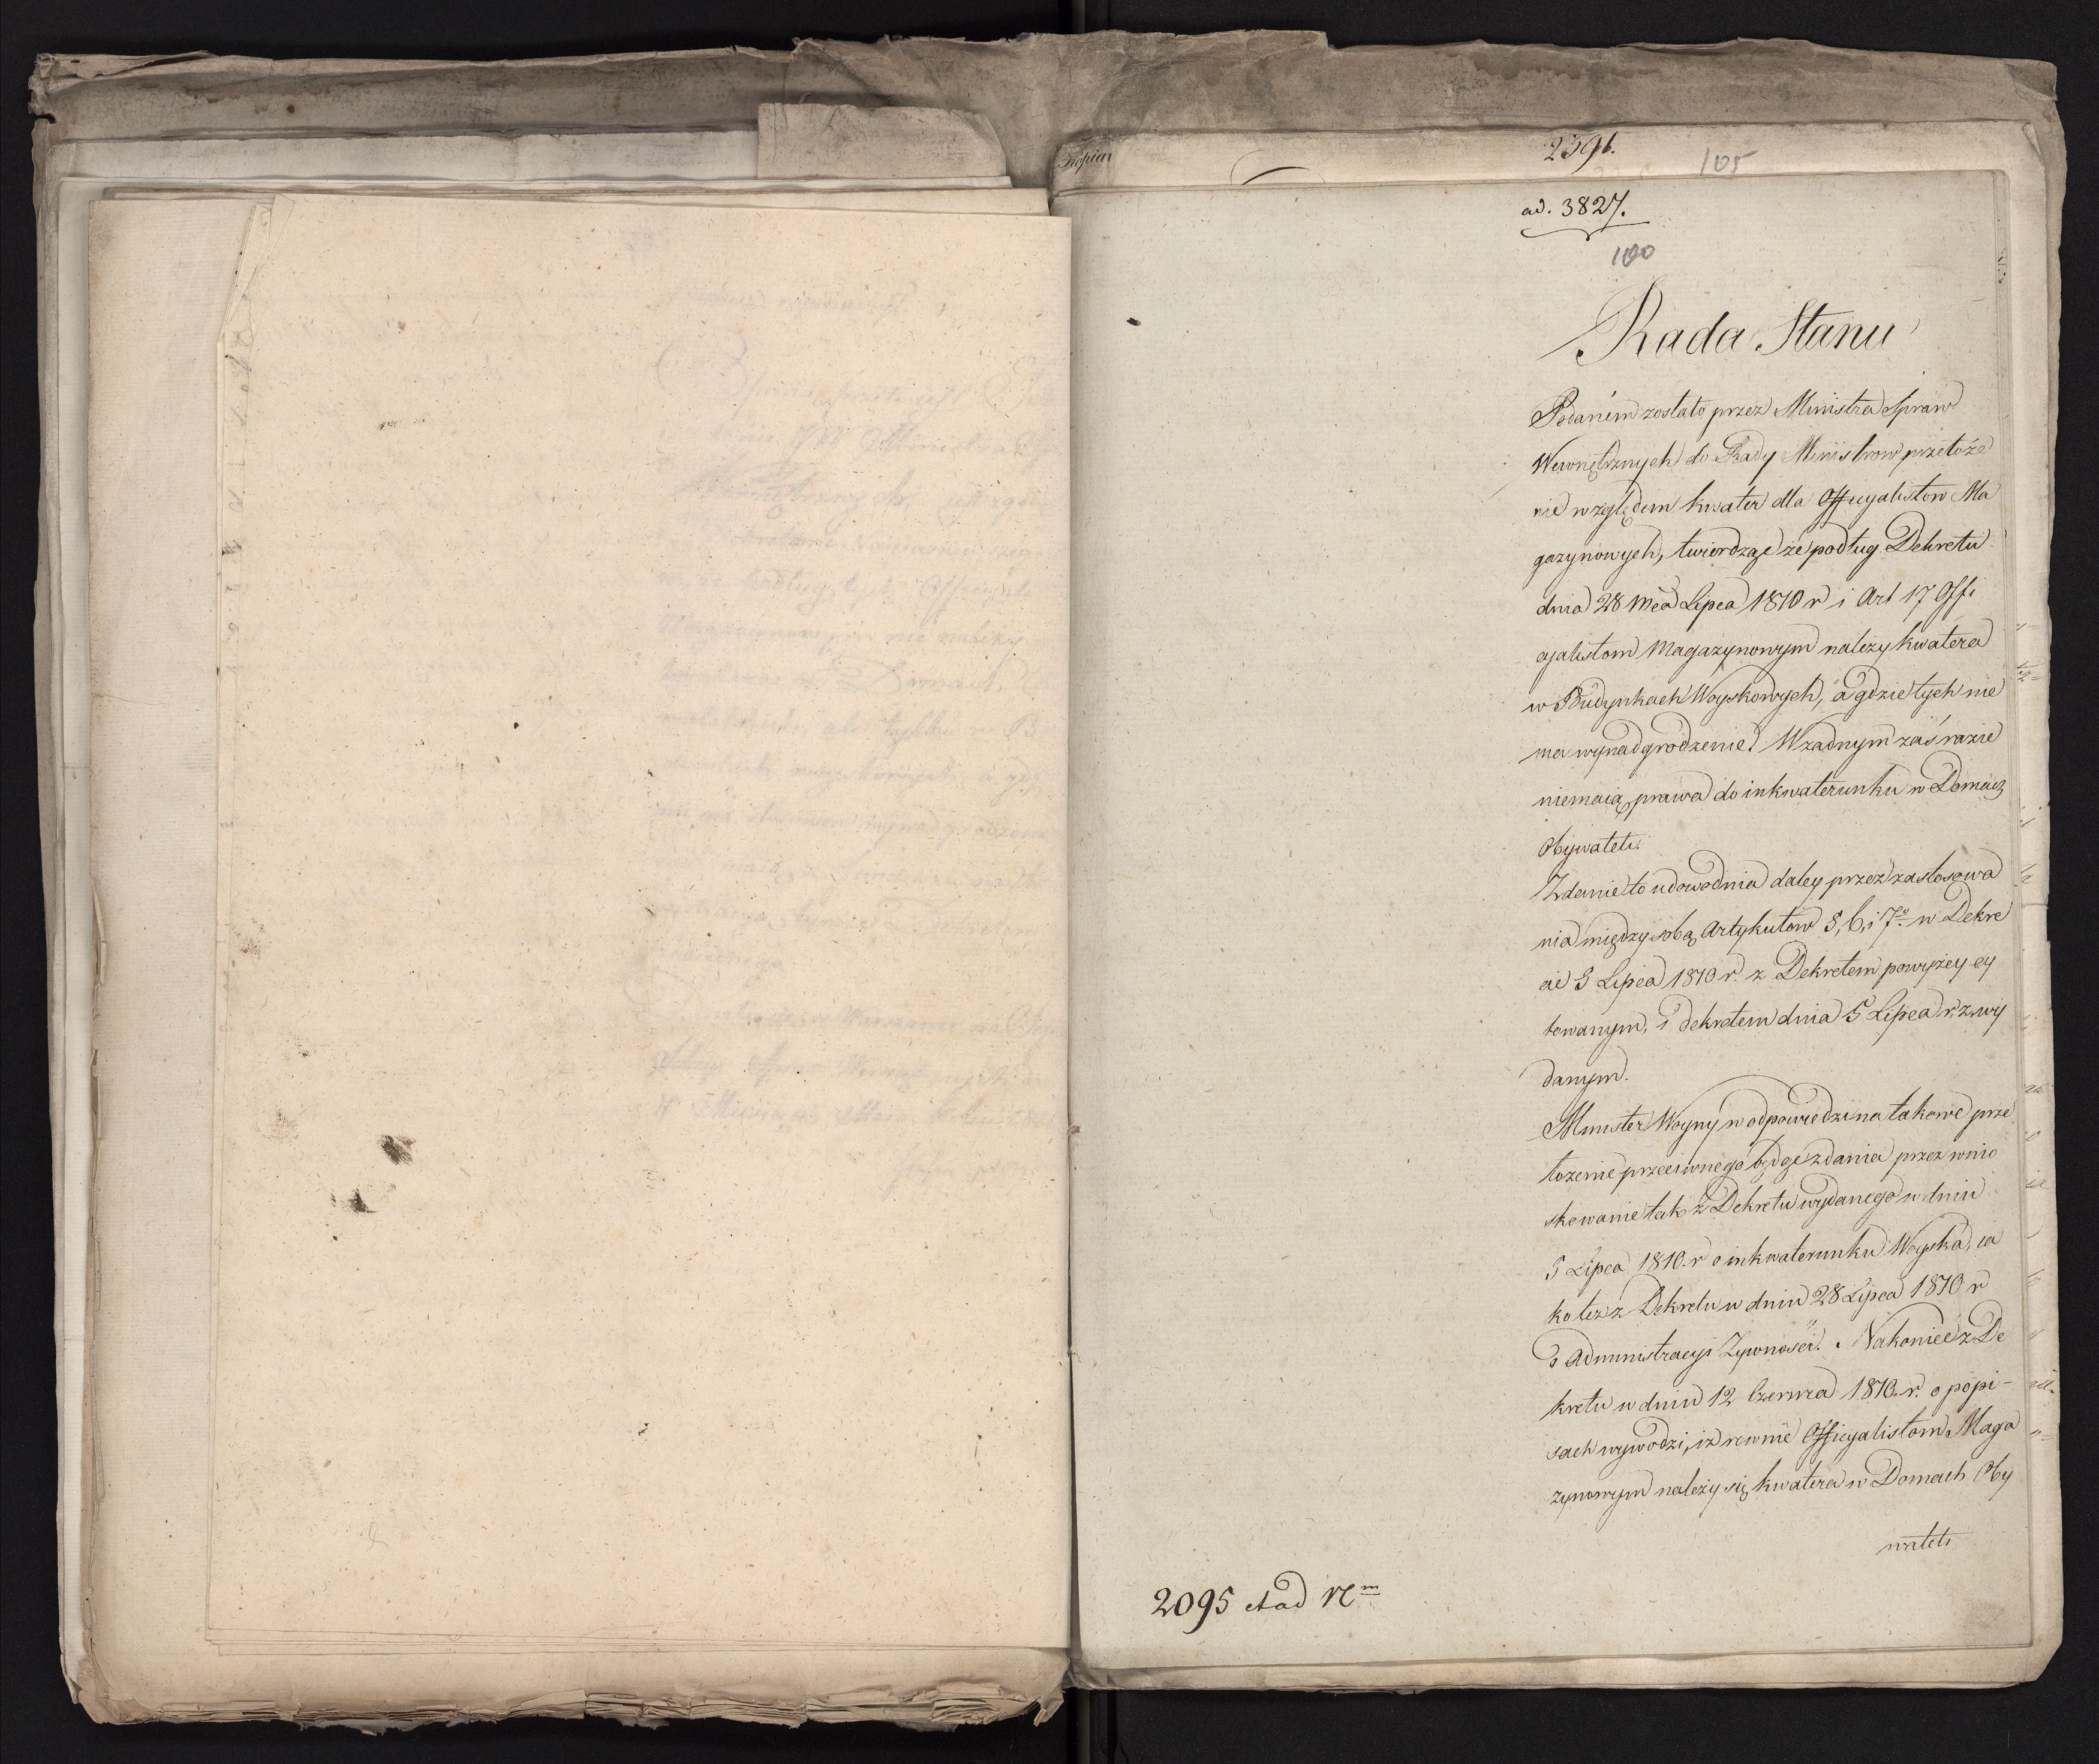 2391.
105
ad. 3827.
100
Rada Stanu
Podaném zostało przez Ministra Spraw
Wewnętrznych do Rady Ministrow przełoże
nie względem kwater dla Officyalistow Ma
gazynowych, twierdząc że podług Dekretu
dnia 28 Mca Lipca 1810 r i Art 17 Offi
cyalistom Magazynowym należy kwatera
w Budynkach Woyskowych, a gdzie tych nie
ma wynadgrodzenie. W żadnym zaś razie
niemaią prawa do inkwaterunku w Domach
Obywateli.
Zdanie to udowodnia daley przez zastosowa
nia między sobą Artykułow 5, 6, i 7º w Dekre
cie 3 Lipca 1810 r. z Dekretem powyżey cy
towanym, i dekretem dnia 5 Lipca r. z. wy
danym.
Minister Woyny w odpowiedzi na takowe prze
łożenie przeciwnego będąc zdania przez wnio
skowanie tak z Dekretu wydanego w dniu
5 Lipca 1810. r o inkwaterunku Woyska, ia
ko też z Dekretu w dniu 28 Lipca 1810 r
o Administracyi Żywności. Nakoniec z De
kretu w dniu 12 Czerwca 1810. r. o popi-
sach wywodzi, iż rownie Officyalistom Maga
zynowym należy się kwatera w Domach Oby
wateli
2095 ad